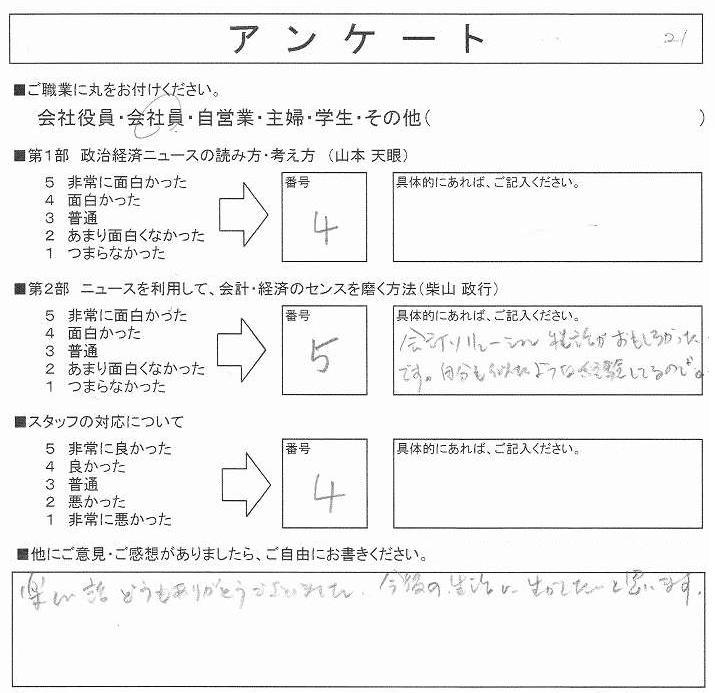 アンケート 21
■ご職業に丸をお付けください。
会社役員・会社員・自営業・主婦・学生・その他( )
■第1部 政治経済ニュースの読み方・考え方 (山本 天眼)
5 非常に面白かった
4 面白かった
3 普通
2 あまり面白くなかった
1 つまらなかった
番号
4
具体的にあれば、ご記入ください。
■第2部 ニュースを利用して、会計・経済のセンスを磨く方法(柴山 政行)
5 非常に面白かった
4 面白かった
3 普通
2 あまり面白くなかった
1 つまらなかった
番号
5
具体的にあれば、ご記入ください。
会計ソリューション がおもしろかった
です。自分も似たような経験してるので。
■スタッフの対応について
5 非常に良かった
4 良かった
3 普通
2 悪かった
1 非常に悪かった
番号
4
具体的にあれば、ご記入ください。
■他にご意見・ご感想がありましたら、ご自由にお書きください。
楽しい話 どうもありがとうございました。今後の生活に生かしたいと思います。